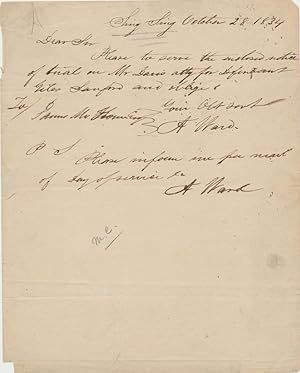 Sing Sing October 28. 1834
Dear Sir
Please to serve the enclosed notice
of trial on Mr Davis atty for Defendant
Giles Sanford and oblige
To Your Obt Servt
James Mc A Ward.
P S Please inform me per mail
of day of service &c
A Ward